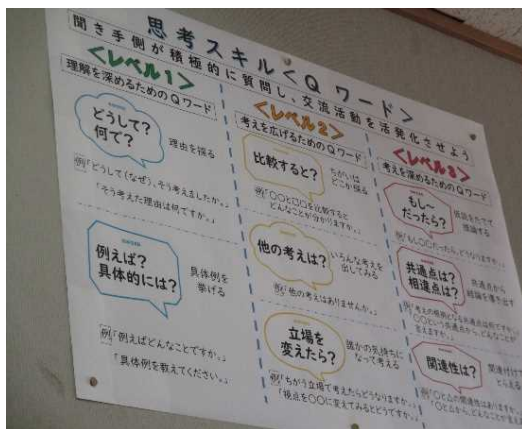 思考スキル<Qワード>
聞き手側が積極的に質問し、交流活動を活発化させよう
<レベル1>
理解を深めるためのQワード
どうして?
何で?
理由を探る
例「どうして(なぜ)、そう考えましたか。」
「そう考えた理由は何ですか。」
例えば?
具体的には?
具体例を
挙げる
例「例えばどんなことですか。」
「具体例を教えてください。」
<レベル2>
考えを広げるためのQワード
比較すると?
ちがいは
どこか探る
例「○○と□□を比較すると
どんなことが分かりますか。」
他の考えは?
いろんな考えを
出してみる
例「他の考えはありませんか。」
立場を
変えたら?
誰かの気持ちに
なって考える
例「ちがう立場で考えたらどうなりますか。」
「視点を○○に変えてみるとどうですか。」
<レベル3>
考えを深めるためのQワード
もし~
だったら?
仮説をたてて
推論する
例「もし○○だったら、どうなりますか。」
共通点は?
相違点は?
共通点から
結論を導き出す
例「考えの根拠となる共通点は何ですか。」
「○○という共通点から、どんなことが
言えますか。」
関連性は?
関連付けて
とらえる
例「○と△の関連性はありますか。」
「○と△から、どんなことが言え